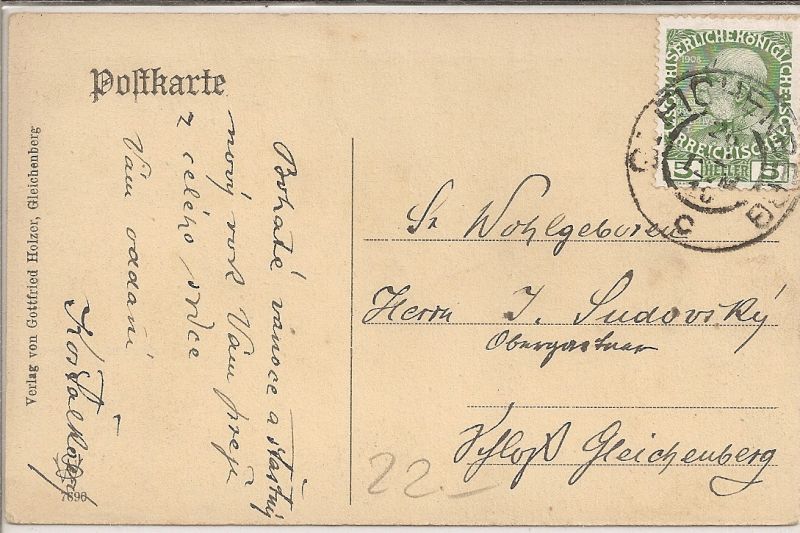 Postkarte
Bohaté vánoce a šťastný
nový rok Vám přeje
z celého srdce
Vám oddaní
Verlag von Gottfried Holzer, Gleichenberg
7896
KAISERLICHEKÖNIGLICHE
1908
ÖSTERREICHISCHE
5 HELLER 5
GLEICHENBERG
Sr. Wohlgeboren
Herrn J. Sudovský
Obergärtner
Schloß Gleichenberg
22.–